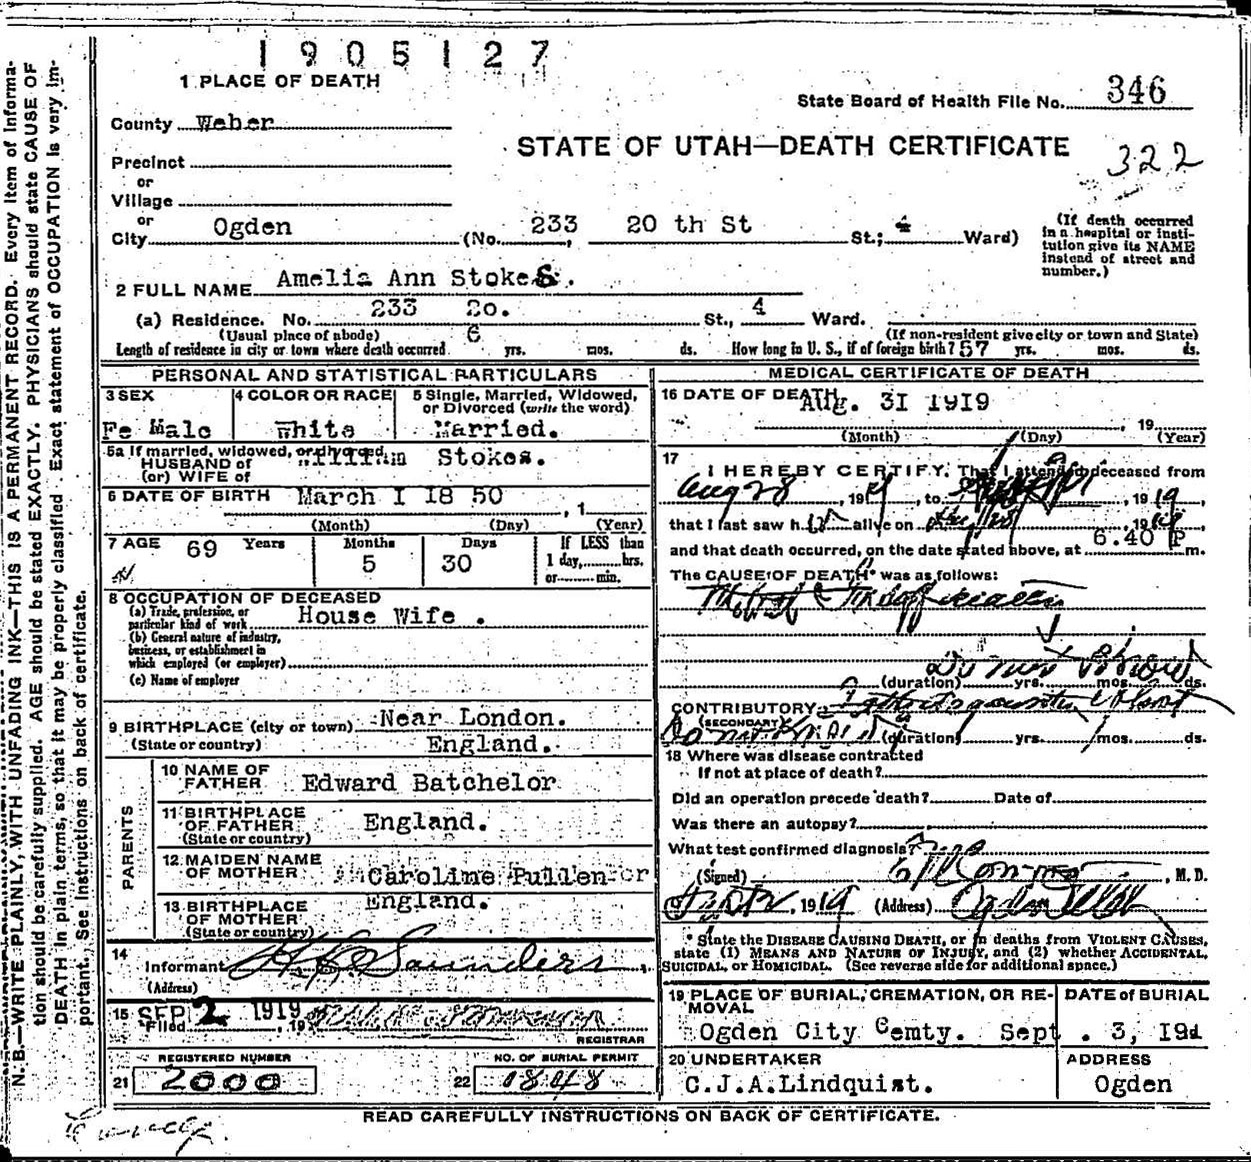 1905127
1 PLACE OF DEATH
State Board of Health File No. 346
County Weber
STATE OF UTAH—DEATH CERTIFICATE
322
Precinct
or
Village
or
City Ogden (No. 233 , 20 th St St.; 4 Ward)
(If death occurred in a hospital or institution give its NAME instead of street and number.)
2 FULL NAME Amelia Ann Stokes.
(a) Residence. No. 233 20. St., 4 Ward.
(Usual place of abode) (If non-resident give city or town and State)
Length of residence in city or town where death occurred 6 yrs. mos. ds. How long in U. S., if of foreign birth? 57 yrs. mos. ds.
PERSONAL AND STATISTICAL PARTICULARS
3 SEX
Fe Male
4 COLOR OR RACE
White
5 Single, Married, Widowed, or Divorced (write the word)
Married.
5a If married, widowed, or divorced
HUSBAND of
(or) WIFE of William Stokes.
6 DATE OF BIRTH March I 18 50 , 1
(Month) (Day) (Year)
7 AGE 69 Years
Months 5
Days 30
If LESS than
1 day, hrs.
or min.
8 OCCUPATION OF DECEASED
(a) Trade, profession, or particular kind of work House Wife .
(b) General nature of industry, business, or establishment in which employed (or employer)
(c) Name of employer
9 BIRTHPLACE (city or town) Near London.
(State or country) England.
PARENTS
10 NAME OF FATHER Edward Batchelor
11 BIRTHPLACE OF FATHER England.
(State or country)
12 MAIDEN NAME OF MOTHER Caroline Pullen
13 BIRTHPLACE OF MOTHER England.
(State or country)
14
Informant Saunders
(Address)
15 SEP 2 1919
Filed , 19
REGISTRAR
REGISTERED NUMBER
21 2000
NO. OF BURIAL PERMIT
22
MEDICAL CERTIFICATE OF DEATH
16 DATE OF DEATH Aug. 3I 1919 , 19
(Month) (Day) (Year)
17
I HEREBY CERTIFY, That I attended deceased from
Aug 28 , 19 , to , 1919
that I last saw h alive on , 1919
and that death occurred, on the date stated above, at 6.40 P m.
The CAUSE OF DEATH* was as follows:
Do not Know
(duration) yrs. mos. ds.
CONTRIBUTORY
(SECONDARY)
Do not Know (duration) yrs. mos. ds.
18 Where was disease contracted
If not at place of death?
Did an operation precede death? Date of
Was there an autopsy?
What test confirmed diagnosis?
(Signed) , M. D.
, 1919 (Address) Ogden Utah
* State the DISEASE CAUSING DEATH, or in deaths from VIOLENT CAUSES, state (1) MEANS AND NATURE OF INJURY, and (2) whether ACCIDENTAL, SUICIDAL, or HOMICIDAL. (See reverse side for additional space.)
19 PLACE OF BURIAL, CREMATION, OR REMOVAL
Ogden City Cemty.
DATE of BURIAL
Sept . 3, 191
20 UNDERTAKER
C.J.A.Lindquist.
ADDRESS
Ogden
READ CAREFULLY INSTRUCTIONS ON BACK OF CERTIFICATE.
N. B.—WRITE PLAINLY, WITH UNFADING INK—THIS IS A PERMANENT RECORD. Every item of information should be carefully supplied. AGE should be stated EXACTLY. PHYSICIANS should state CAUSE OF DEATH in plain terms, so that it may be properly classified. Exact statement of OCCUPATION is very important. See instructions on back of certificate.